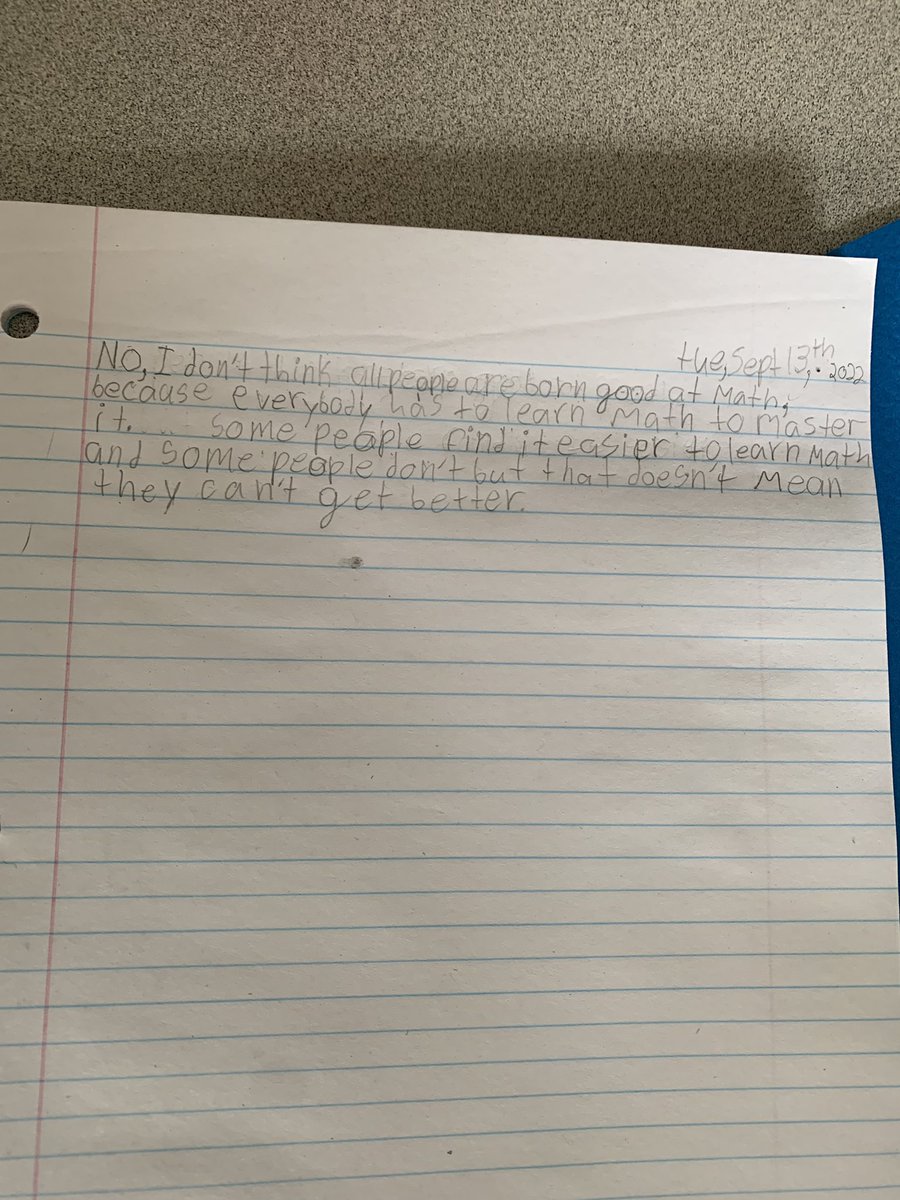 tue, Sept 13,th 2022
No, I don't think all people are born good at Math,
because everybody has to learn Math to master
it. some people find it easier to learn Math
and some people don't but that doesn't Mean
they can't get better.